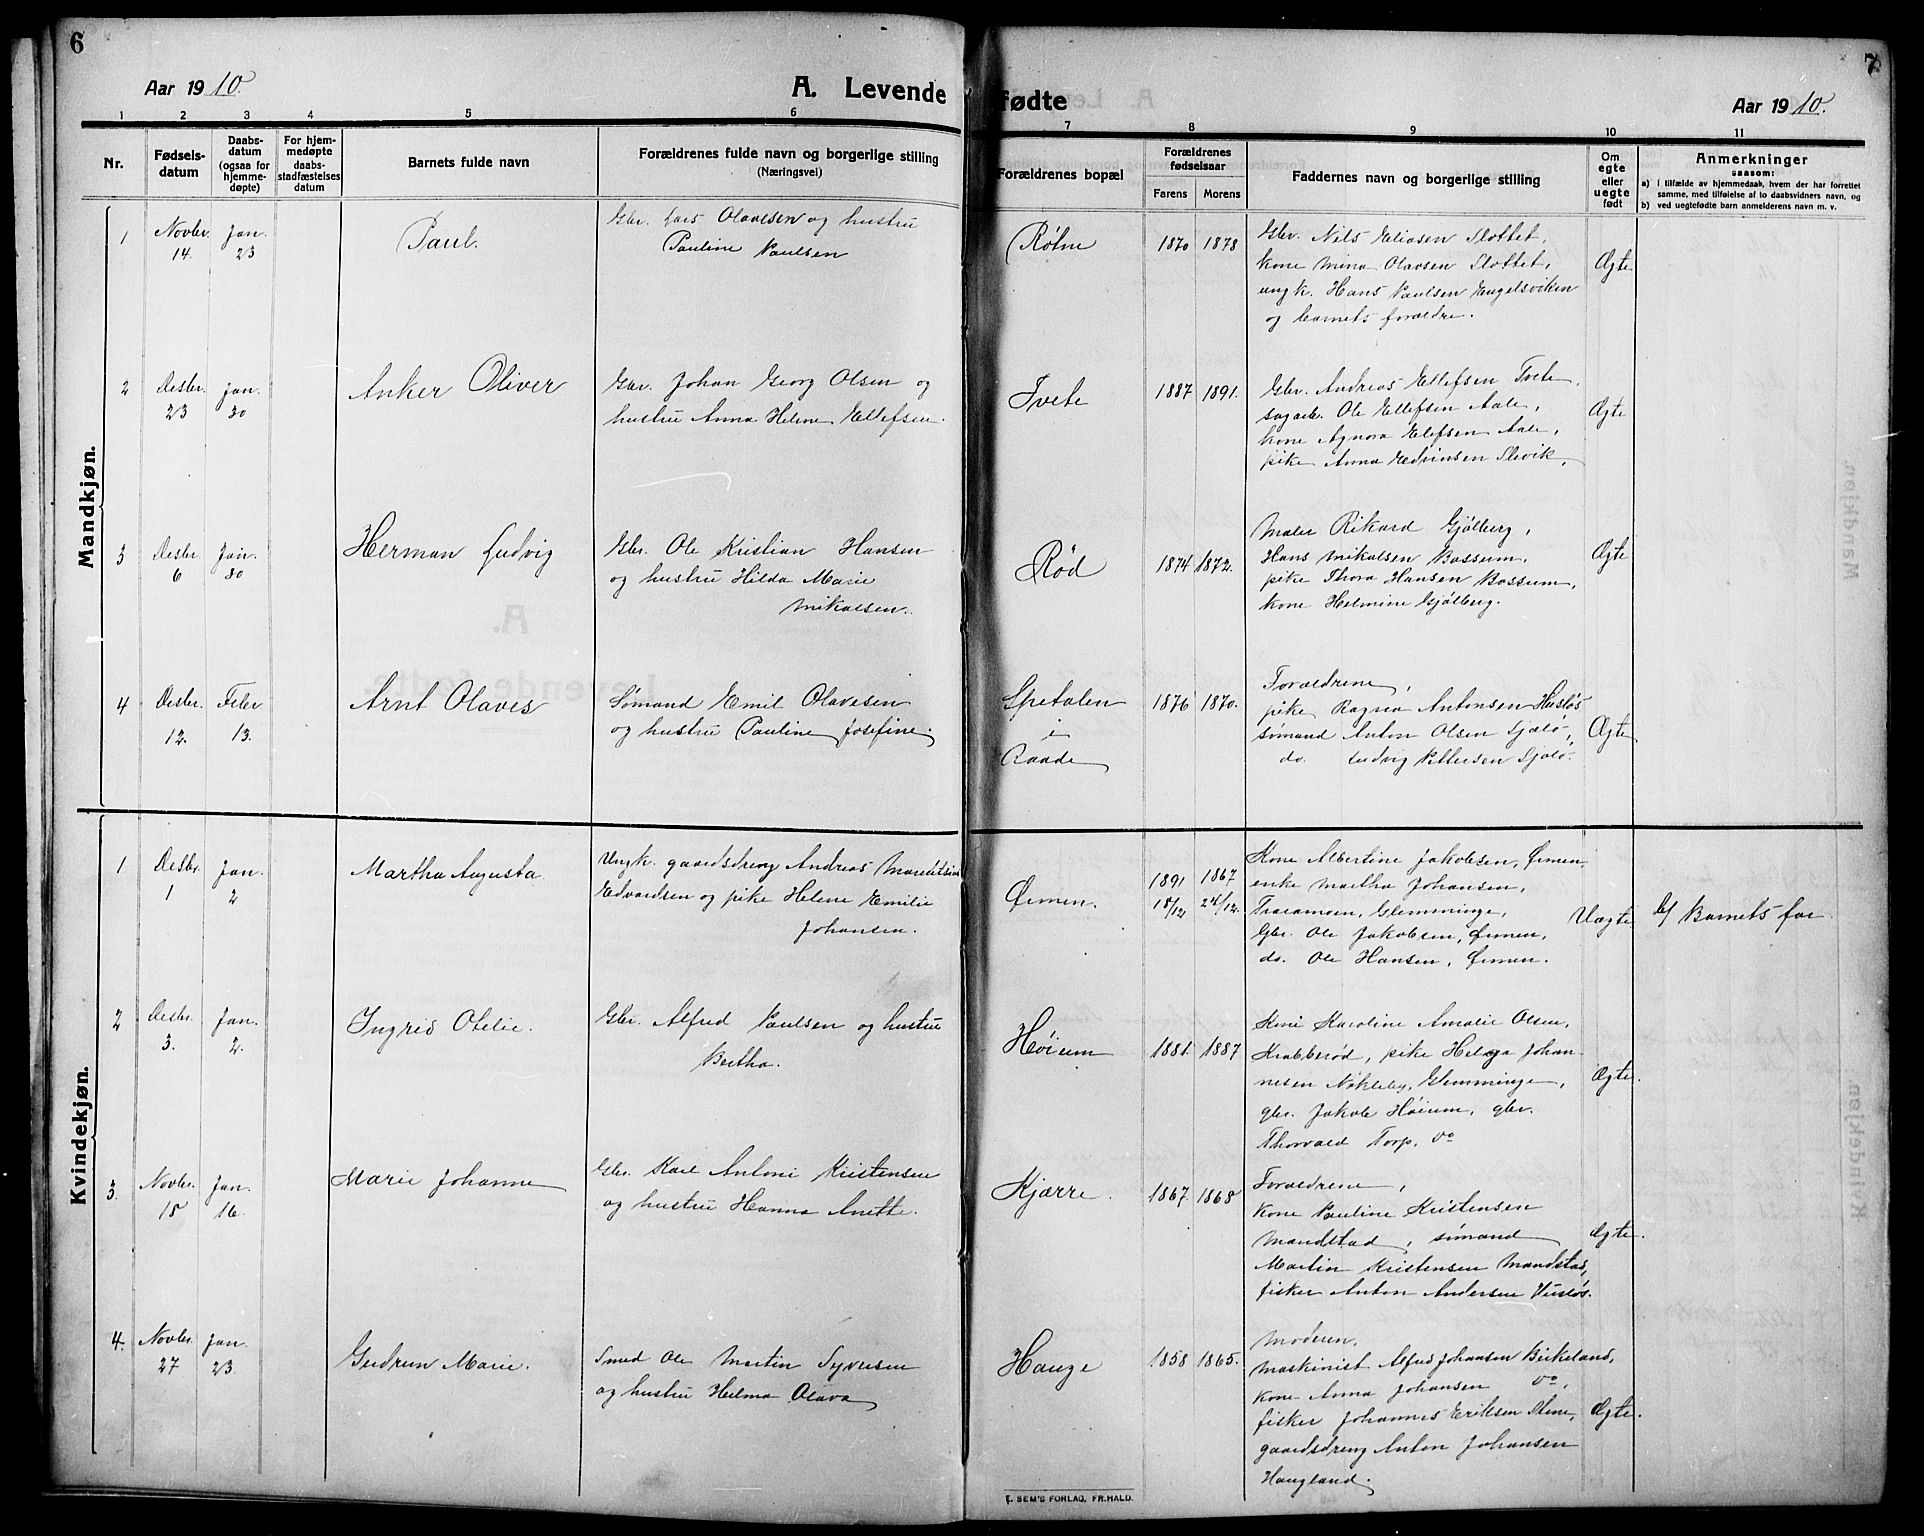 6
Aar 1910.
A. Levende
1 2 3 4 5 6
Nr.
Fødsels-
datum
Daabs-
datum
(ogsaa for
hjemme-
døpte)
For hjem-
medøpte
daabs-
stadfæstelses
datum
Barnets fulde navn
Forældrenes fulde navn og borgerlige stilling
(Næringsvei)
Mandkjøn.
1 Novbr. 14. Jan. 23 Paul. Gbr. Lars Olavesen og hustru
Pauline Paulsen
2 Desbr. 23 Jan. 30 Anker Oliver Gbr. Johan Georg Olsen og
hustru Anna Helene Ellefsen.
3 Desbr. 6 Jan. 30 Herman Ludvig Gbr. Ole Kristian Hansen
og hustru Hilda Marie
Mikalsen.
4 Desbr. 12. Febr. 13. Arnt Olaves Sømand Emil Olavesen
og hustru Pauline Josefine.
Kvindekjøn.
1 Desbr. 1 Jan. 2 Martha Augusta Ungk. gaardsdreng Andreas
Edvardsen og pike Helene Emilie
Johansen.
2 Desbr. 3. Jan. 2. Ingrid Otelie. Gbr. Alfred Paulsen og hustru
Bertha.
3. Novbr. 18 Jan. 16. Marie Johanne Gbr. Karl Antoni Kristensen
og hustru Hanna Anette.
4. Novbr. 27 Jan. 23. Gudrun Marie. Smed Ole Martin Syversen
og hustru Helma Olava
7
fødte
Aar 1910.
7 8 9 10 11
Forældrenes bopæl
Forældrenes
fødselsaar
Farens Morens
Faddernes navn og borgerlige stilling
Om
egte
eller
uegte
født
Anmerkninger
saasom:
a) i tilfælde av hjemmedaab, hvem der har forrettet
samme, med tilføielse af to daabsvidners navn, og
b) ved uegtefødte barn anmelderens navn m. v.
Røtne 1870 1878 Gbr. Nils Eliasen Slottet,
kone Mina Olavsen Slottet,
ungk. Hans Paulsen Engelsviken
og barnets forældre.
Ægte
Tvete 1887 1891. Gbr. Andreas Ellefsen Tvete,
sagarb. Ole Ellefsen Aale,
kone Agnora Elefsen Aale,
pike Anna Edvinsen Slevik,
Ægte
Rød 1874 1872. Maler Rikard Gjølberg,
Hans Mikalsen Bossum,
pike Thora Hansen Bossum,
kone Helmine Gjølberg.
Ægte
Spetalen
i
Raade
1876 1870. Forældrene,
pike Ragna Antonsen Husløs
sømand Anton Olsen Sjølø,
do. Ludvig Pettersen Sjølø.
Ægte
Ømen. 1891 18/12 1867 24/12. Kone Albertine Jakobsen, Ømen
enke Martha Johansen,
Traramoen, Glemminge,
Gbr. Ole Jakobsen, Ømen,
do. Ole Hansen, Ømen.
Uægte b/ Barnets far.
Høium 1881. 1887 Kone Karoline Amalie Olsen,
Krabberød, pike Helga Johan-
nesen Nøkleby, Glemminge,
gbr. Jakob Høium, gbr.
Thorvald Torp. do
Ægte.
Kjærre. 1867. 1868 Forældrene,
Kone Pauline Kristensen
Mandstad, sømand
Martin Kristensen Mandstad,
fisker Anton Andersen Husløs.
Ægte.
Hauge 1858 1865. Moderen,
Maskinist Alfred Johansen Birkeland,
kone Anna Johansen do,
fisker Johannes Eriksen Stene,
gaardsdreng Anton Johansen
Haugland.
Ægte.
E. SEM'S FORLAG, FR.HALD.